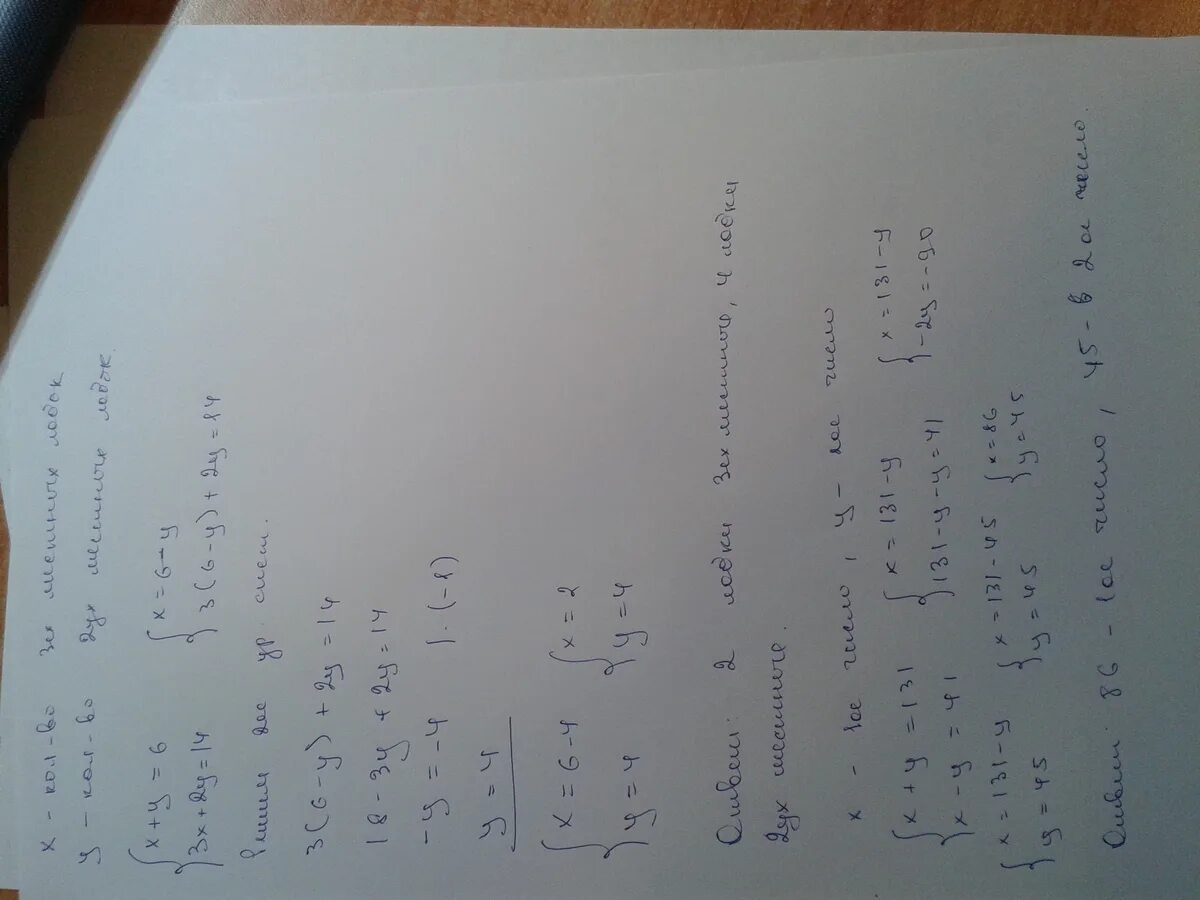 x - кол-во 3ех местных лодок
y - кол-во 2ух местных лодок.
{x+y=6 {x=6-y
{3x+2y=14 {3(6-y)+2y=14
Решим 2ое ур. сист.
3(6-y)+2y=14
18-3y+2y=14
-y=-4 |·(-1)
y=4
{x=6-4 {x=2
{y=4 {y=4
Ответ: 2 лодки 3ех местные, 4 лодки
2ух местные.
x - 1ое число, y - 2ое число
{x+y=131 {x=131-y {x=131-y
{x-y=41 {131-y-y=41 {-2y=-90
{x=131-y {x=131-45 {x=86
{y=45 {y=45 {y=45
Ответ: 86 - 1ое число, 45 - 2ое число.